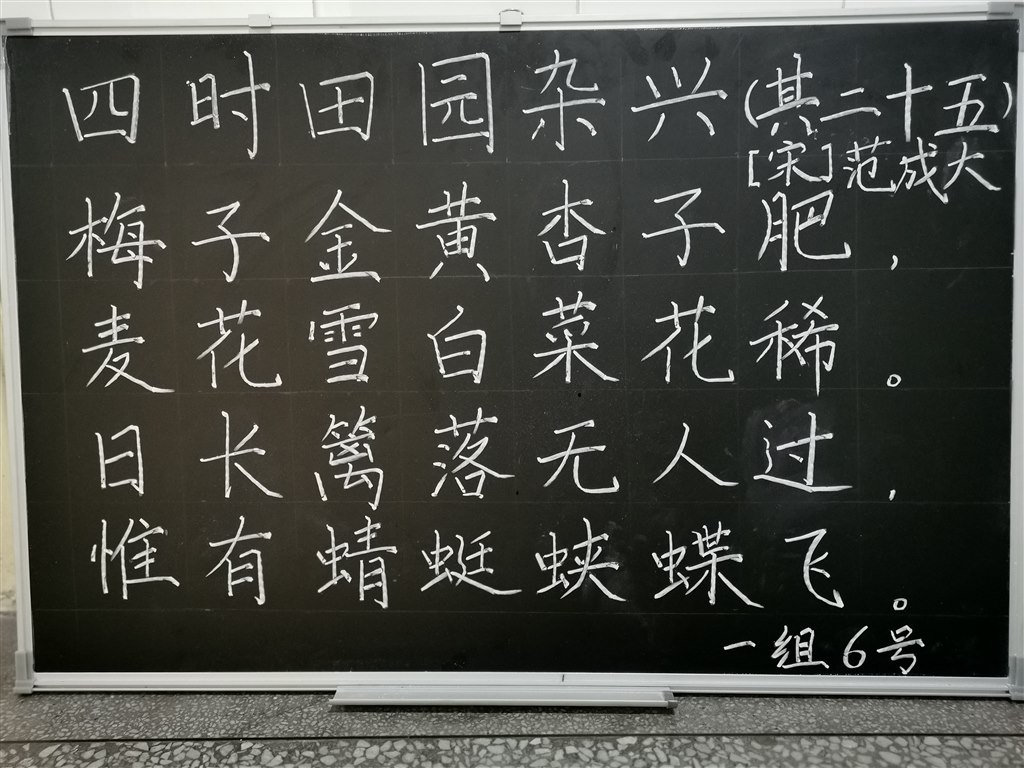 四时田园杂兴(其二十五)
[宋]范成大
梅子金黄杏子肥，
麦花雪白菜花稀。
日长篱落无人过，
惟有蜻蜓蛱蝶飞。
一组6号